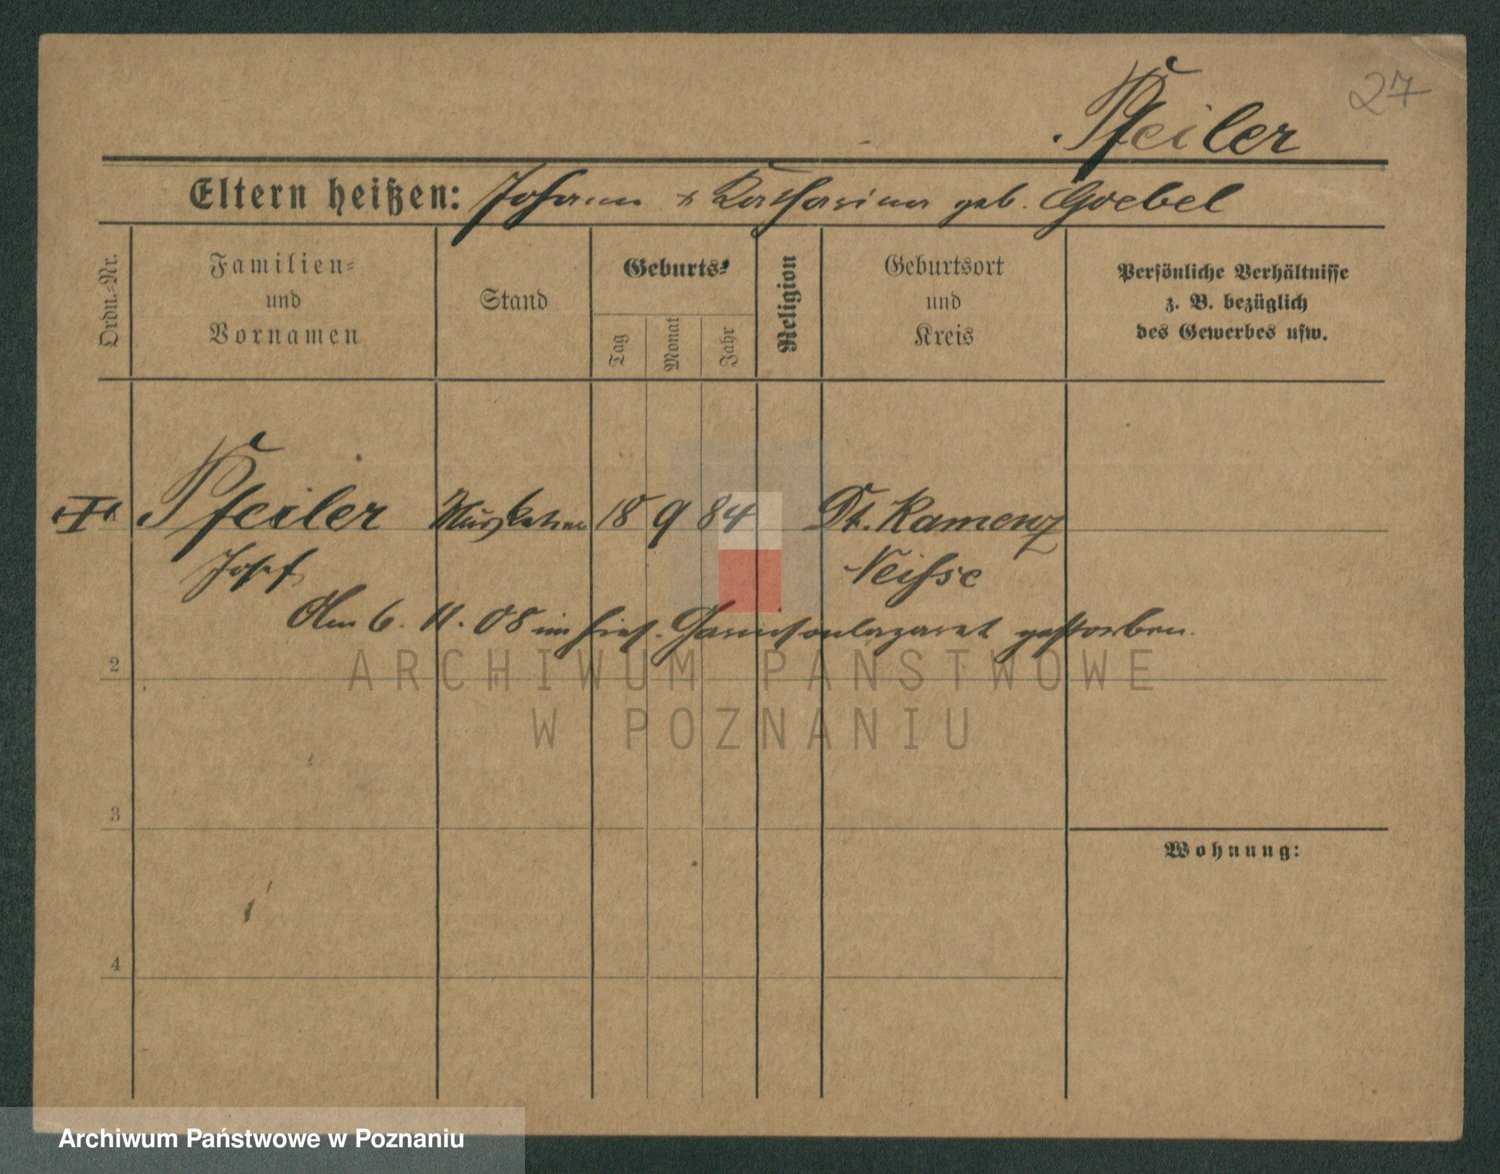 27
Pfeiler
Eltern heißen: Johann & Katharina geb. Goebel
Ordn.-Nr.
Familien-
und
Vornamen
Stand
Geburts-
Tag
Monat
Jahr
Religion
Geburtsort
und
Kreis
Persönliche Verhältnisse
z. B. bezüglich
des Gewerbes usw.
Pfeiler Musketier 18 9 84 Dt. Kamenz
Josef Neisse
Am 6. 11. 08 im hies. Garnisonlazaret gestorben.
2
3
4
Wohnung:
ARCHIWUM PAŃSTWOWE
W POZNANIU
Archiwum Państwowe w Poznaniu